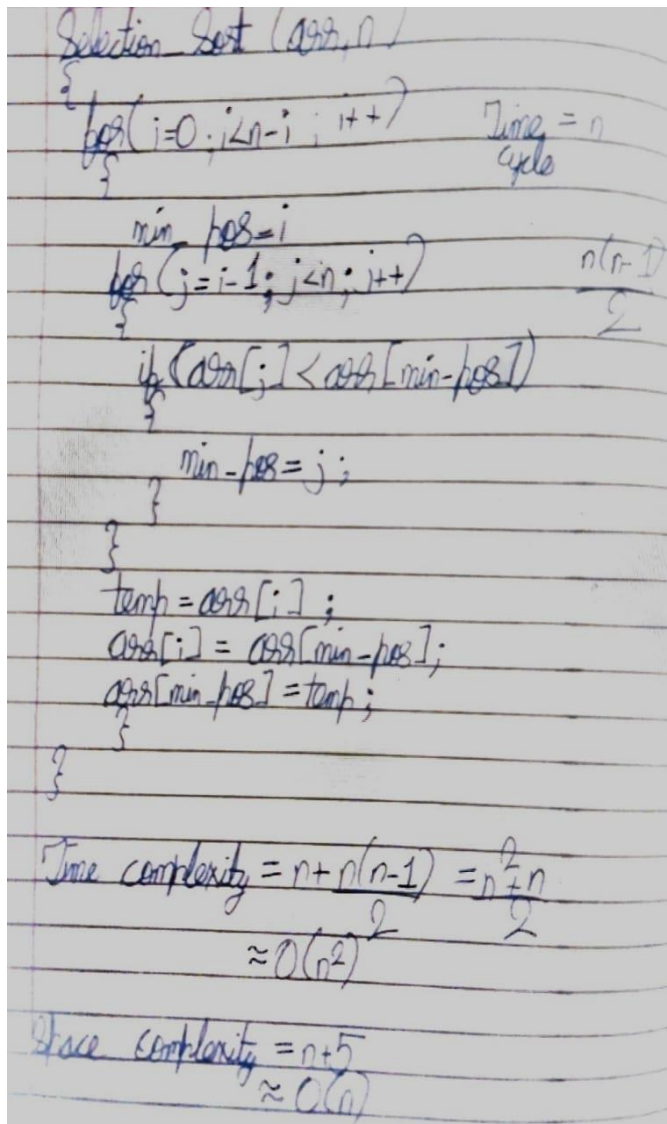 Selection_Sort (arr, n)
{
for( i=0 ; i<n-i ; i++)
Time = n
cycle
{
min_pos=i
for(j=i-1; j<n; j++)
n(n-1)
2
{
if (arr[j] < arr[min-pos])
{
min-pos = j ;
}
}
temp = arr[i] ;
arr[i] = arr[min-pos];
arr[min-pos] = temp;
}
}
Time complexity = n + n(n-1)/2 = n²+n/2
≈ O(n²)
Space complexity = n+5
≈ O(n)